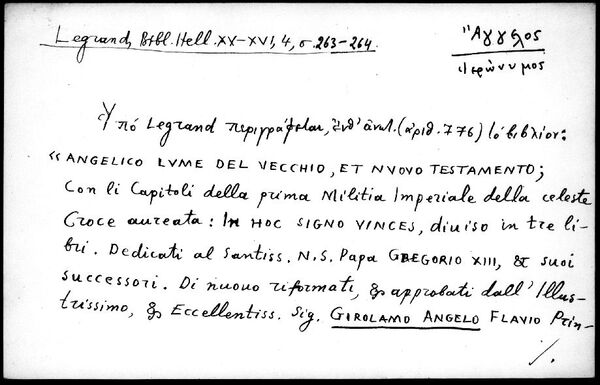 Legrand, Bibl. Hell. XV-XVI, 4, σ. 263-264.
Ἄγγελος
Ἱερώνυμος
Ὑπό Legrand περιγράφεται, ἐνθ' ἀνωτ. (ἀριθ. 776) τό βιβλίον:
« ANGELICO LVME DEL VECCHIO, ET NVOVO TESTAMENTO;
Con li Capitoli della prima Militia Imperiale della celeste
Croce aureata: IN HOC SIGNO VINCES, diuiso in tre li-
bri. Dedicati al Santiss. N.S. Papa GREGORIO XIII, & suoi
successori. Di nuouo riformati, & approbati dall' Illus-
trissimo, & Eccellentiss. Sig. GIROLAMO ANGELO FLAVIO Prin-
./.